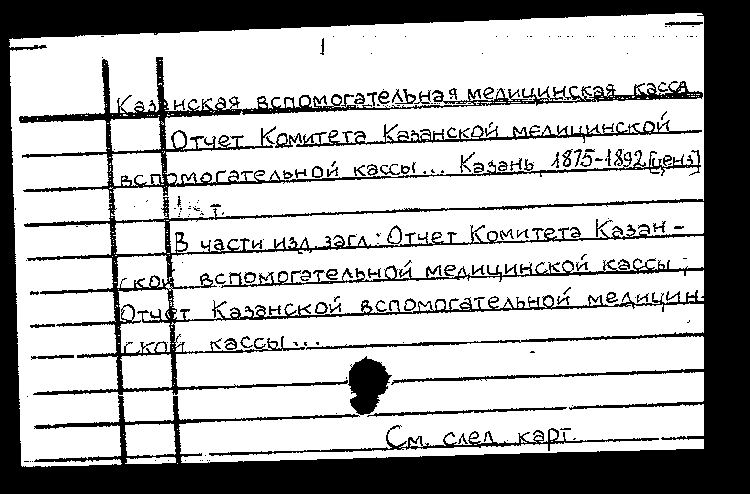 Казанская вспомогательная медицинская касса
Отчет Комитета Казанской медицинской
вспомогательной кассы... Казань, 1875-1892 [ценз]
т.
В части изд. загл.: Отчет Комитета Казан-
ской вспомогательной медицинской кассы;
Отчет Казанской вспомогательной медицин-
ской кассы...
См. след. карт.